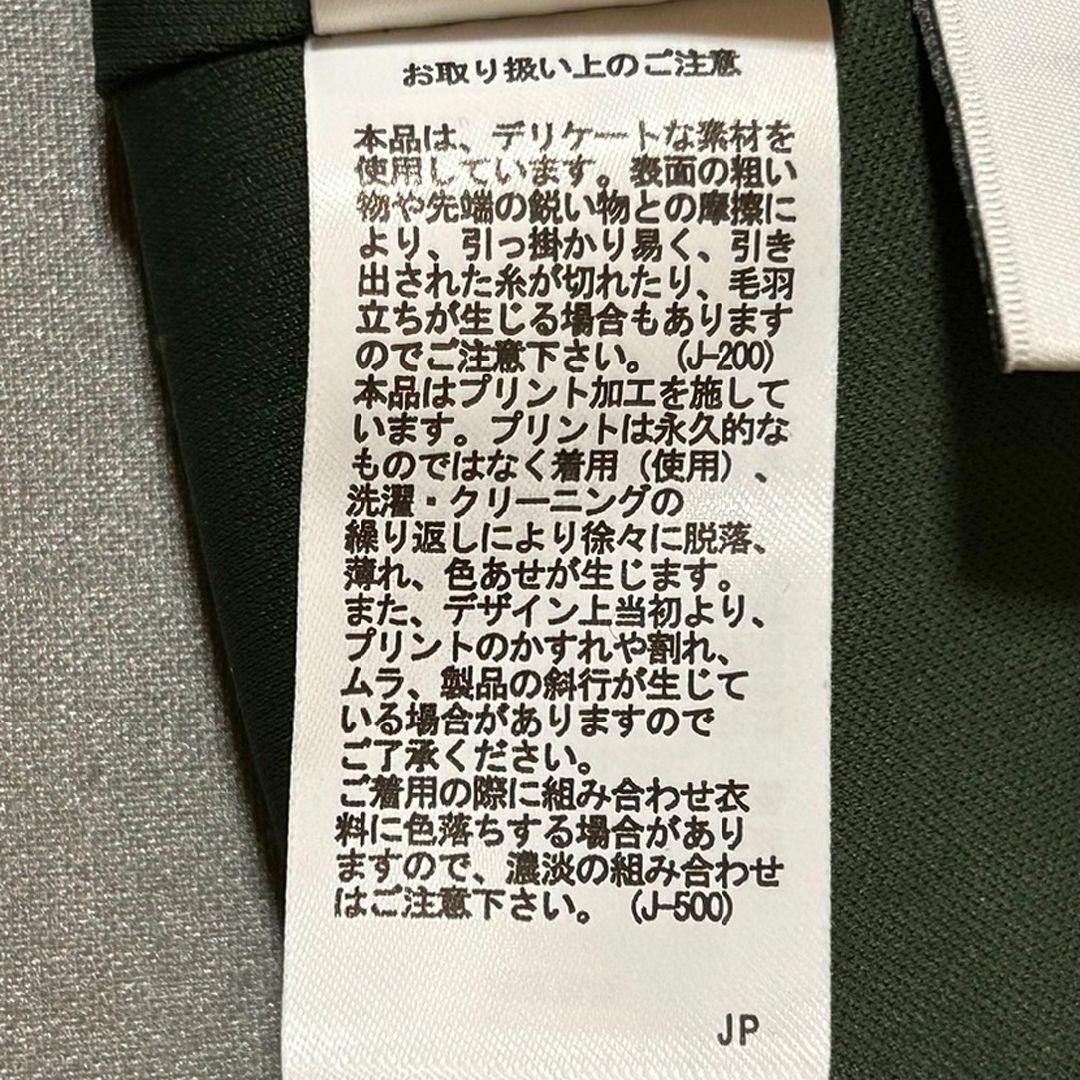 お取り扱い上のご注意
本品は、デリケートな素材を
使用しています。表面の粗い
物や先端の鋭い物との摩擦に
より、引っ掛かり易く、引き
出された糸が切れたり、毛羽
立ちが生じる場合もあります
のでご注意下さい。(J-200)
本品はプリント加工を施して
います。プリントは永久的な
ものではなく着用(使用)、
洗濯・クリーニングの
繰り返しにより徐々に脱落、
薄れ、色あせが生じます。
また、デザイン上当初より、
プリントのかすれや割れ、
ムラ、製品の斜行が生じて
いる場合がありますので
ご了承ください。
ご着用の際に組み合わせ衣
料に色落ちする場合があり
ますので、濃淡の組み合わせ
はご注意下さい。(J-500)
JP